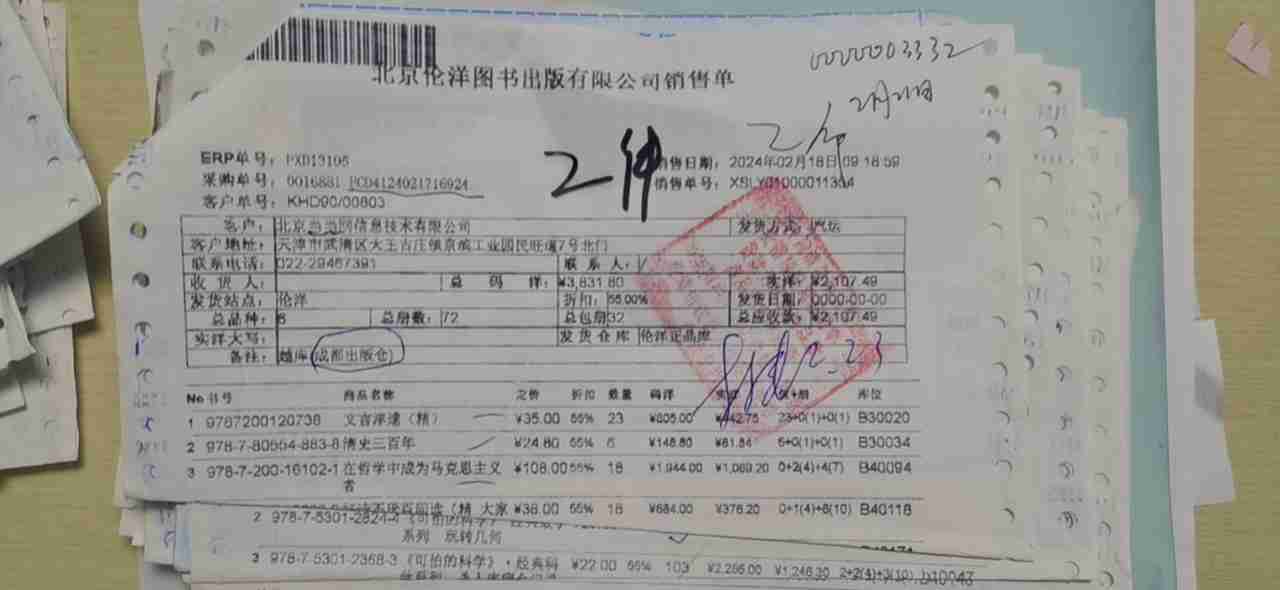 北京伦洋图书出版有限公司销售单
0000003332
2月21日
2件
2件
ERP单号: PXD13105
销售日期: 2024年02月18日 09:18:59
采购单号: 0016881 PCD4124021716924
销售单号: XSLY01000011354
客户单号: KHD90/00803
客户: 北京当当网信息技术有限公司 发货方式: 汽运
客户地址: 天津市武清区大王古庄镇京滨工业园民旺道7号北门
联系电话: 022-29467391 联系人: /
收货人: 总码洋: ¥3,831.80 实洋: ¥2,107.49
发货站点: 伦洋 折扣: 55.00% 发货日期: 0000-00-00
总品种: 6 总册数: 72 总包册 32 总应收款: ¥2,107.49
实洋大写: 发货仓库 伦洋正品库
备注: 越库(成都出版仓)
2.23
No 书号 商品名称 定价 折扣 数量 码洋 实洋 包+册 库位
1 9787200120738 文言津逮(精) ¥35.00 55% 23 ¥805.00 ¥442.75 23+0(1)+0(1) B30020
2 978-7-80554-883-8 清史三百年 ¥24.80 55% 6 ¥148.80 ¥81.84 6+0(1)+0(1) B30034
3 978-7-200-16102-1 在哲学中成为马克思主义 ¥108.00 55% 18 ¥1,944.00 ¥1,069.20 0+2(4)+4(7) B40094
者
(精 大家 ¥38.00 55% 18 ¥684.00 ¥376.20 0+1(4)+8(10) B40118
2 978-7-5301-2824-4 《可怕的科学》
系列 玩转几何
3 978-7-5301-2368-3 《可怕的科学》·经典科 ¥22.00 55% 103 ¥2,266.00 ¥1,246.30 2+2(4)+3(10) B10043